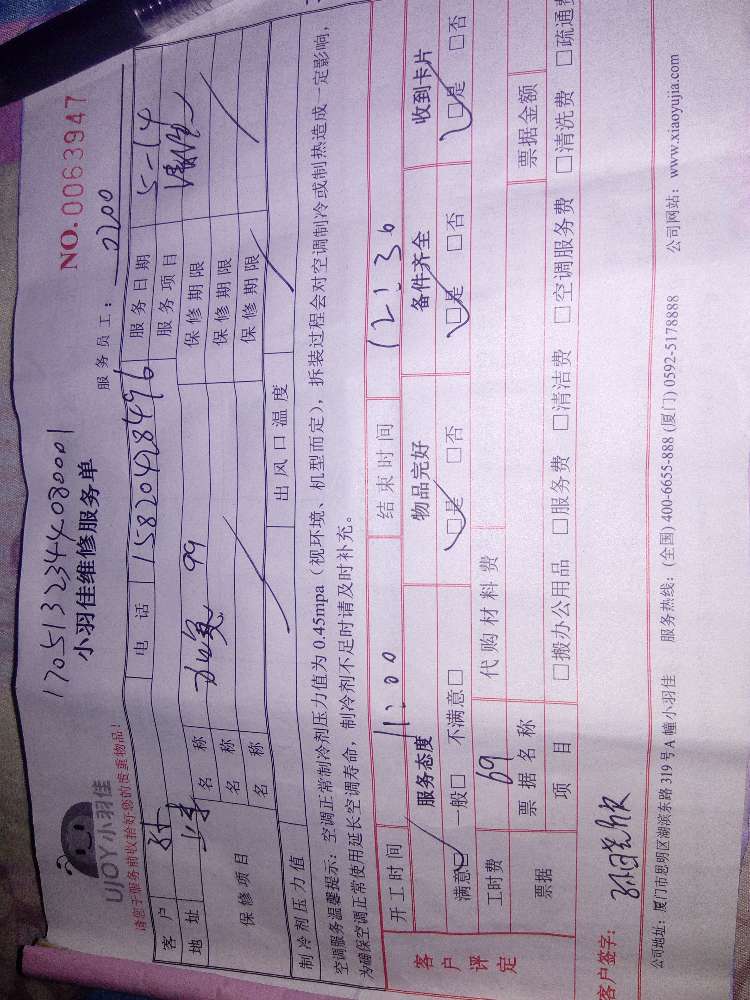 1705132344080001
NO.0063947
UJOY小羽佳
小羽佳维修服务单
请您于服务前收拾好您的贵重物品!
服务员工: 0200
客户 电话 15820428496 服务日期 5-14
地址 服务项目
保修项目 名称 99 保修期限
名称 保修期限
名称 保修期限
制冷剂压力值 出风口温度
空调服务温馨提示:空调正常制冷剂压力值为0.45mpa(视环境、机型而定),拆装过程会对空调制冷或制热造成一定影响,
为确保空调正常使用延长空调寿命,制冷剂不足时请及时补充。
开工时间 11:00 结束时间 12:30
客户评定 服务态度 物品完好 备件齐全 收到卡片
满意□ 一般□ 不满意□ □是 □否 □是 □否 □是 □否
工时费 69 代购材料费
票据 票据名称 票据金额
项目 □搬办公用品 □服务费 □清洁费 □空调服务费 □清洗费 □疏通费
客户签字:
公司地址:厦门市思明区湖滨东路319号A幢小羽佳 服务热线:(全国)400-6655-888 (厦门)0592-5178888 公司网站:www.xiaoyujia.com